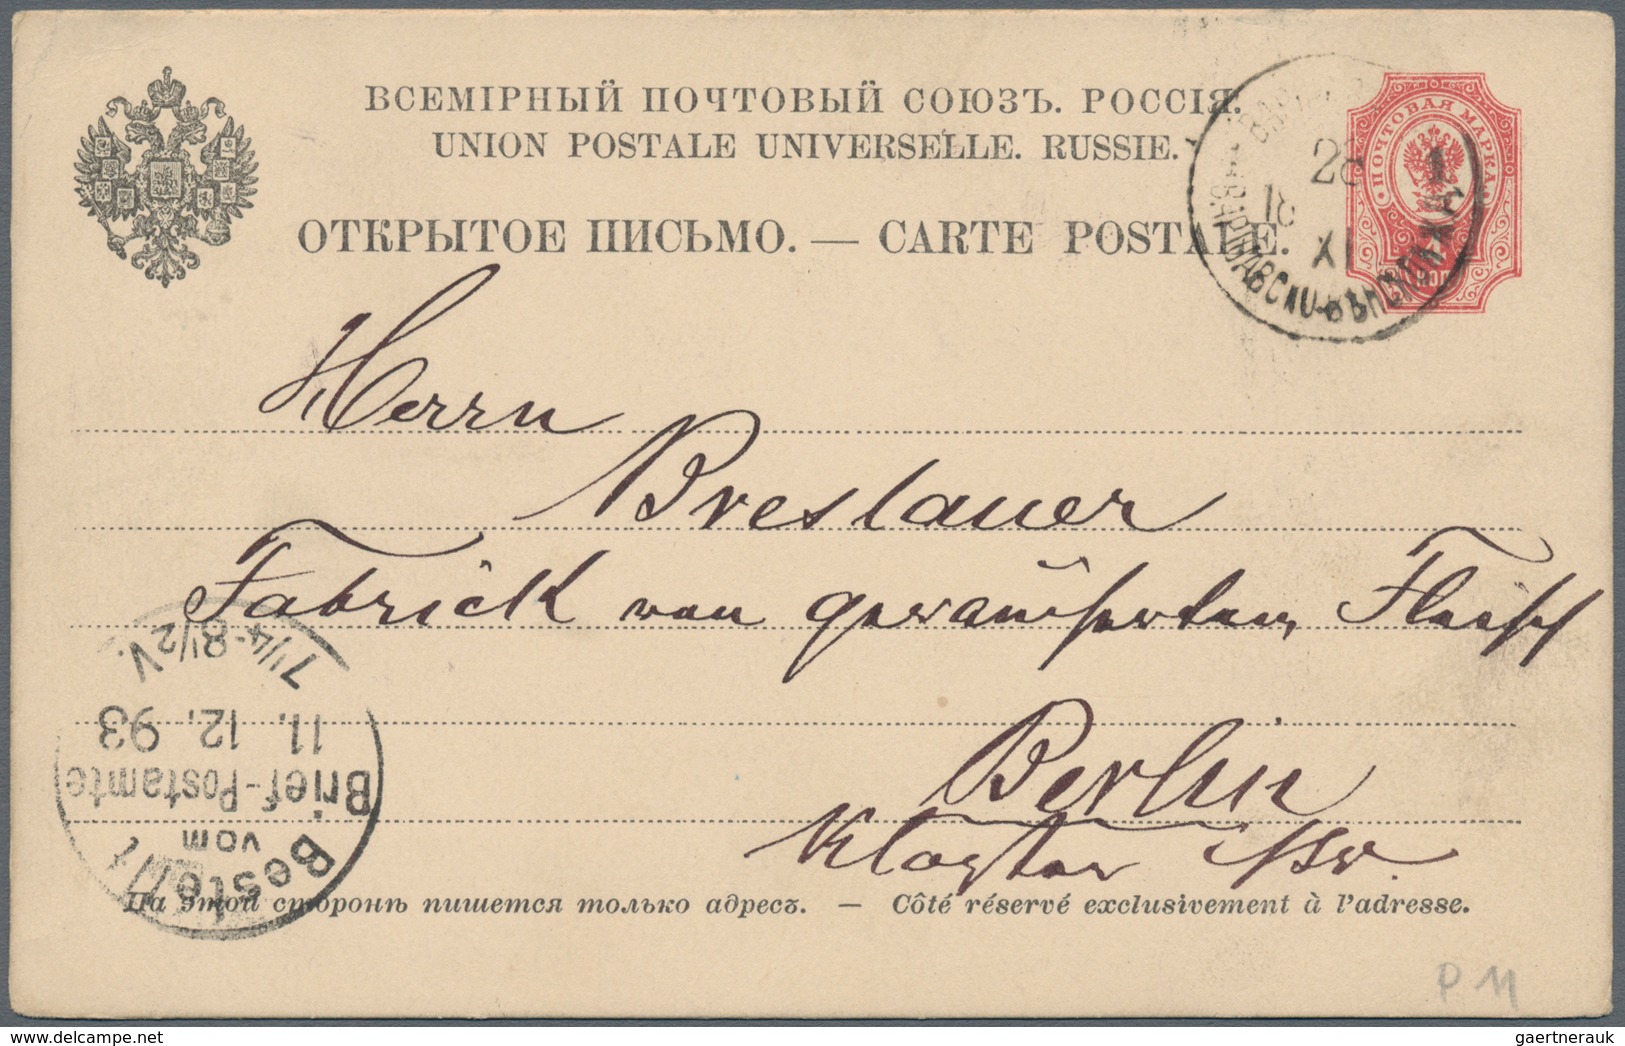 ВСЕМІРНЫЙ ПОЧТОВЫЙ СОЮЗЪ. РОССІЯ.
UNION POSTALE UNIVERSELLE. RUSSIE.
ОТКРЫТОЕ ПИСЬМО. — CARTE POSTALE.
ПОЧТОВАЯ МАРКА
28
1
18
XI
Herrn
Breslauer
Fabrick von geräucherten Fleisch
Berlin
Kloster Str.
Bestellt
vom
Brief-Postamte
11. 12. 93
7 1/4-8 1/2 V.
На этой сторонѣ пишется только адресъ. — Côté réservé exclusivement à l'adresse.
P M
gaertnerauk